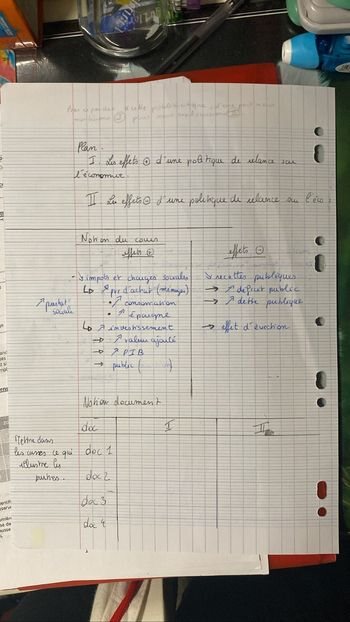 Plan.
I. Les effets ⊕ d'une politique de relance sur
l'économie.
II Les effets ⊖ d'une politique de relance sur l'éco
Notion du cours
effets ⊕
effets ⊖
↘ impôts et charges sociales
↘ recettes publiques
↳ ↗ pvr d'achat (ménages)
→ ↗ déficit public
• ↗ consommation
→ ↗ dette publique
• ↗ épargne
↗
sociale
↳ ↗ investissement
→ effet d'éviction
→ ↗ valeur ajouté
→ ↗ PIB
→ public
Notion document
doc I II
Mettre dans
les cases ce qui
illustre les
parties.
doc 1
doc 2
doc 3
doc 4